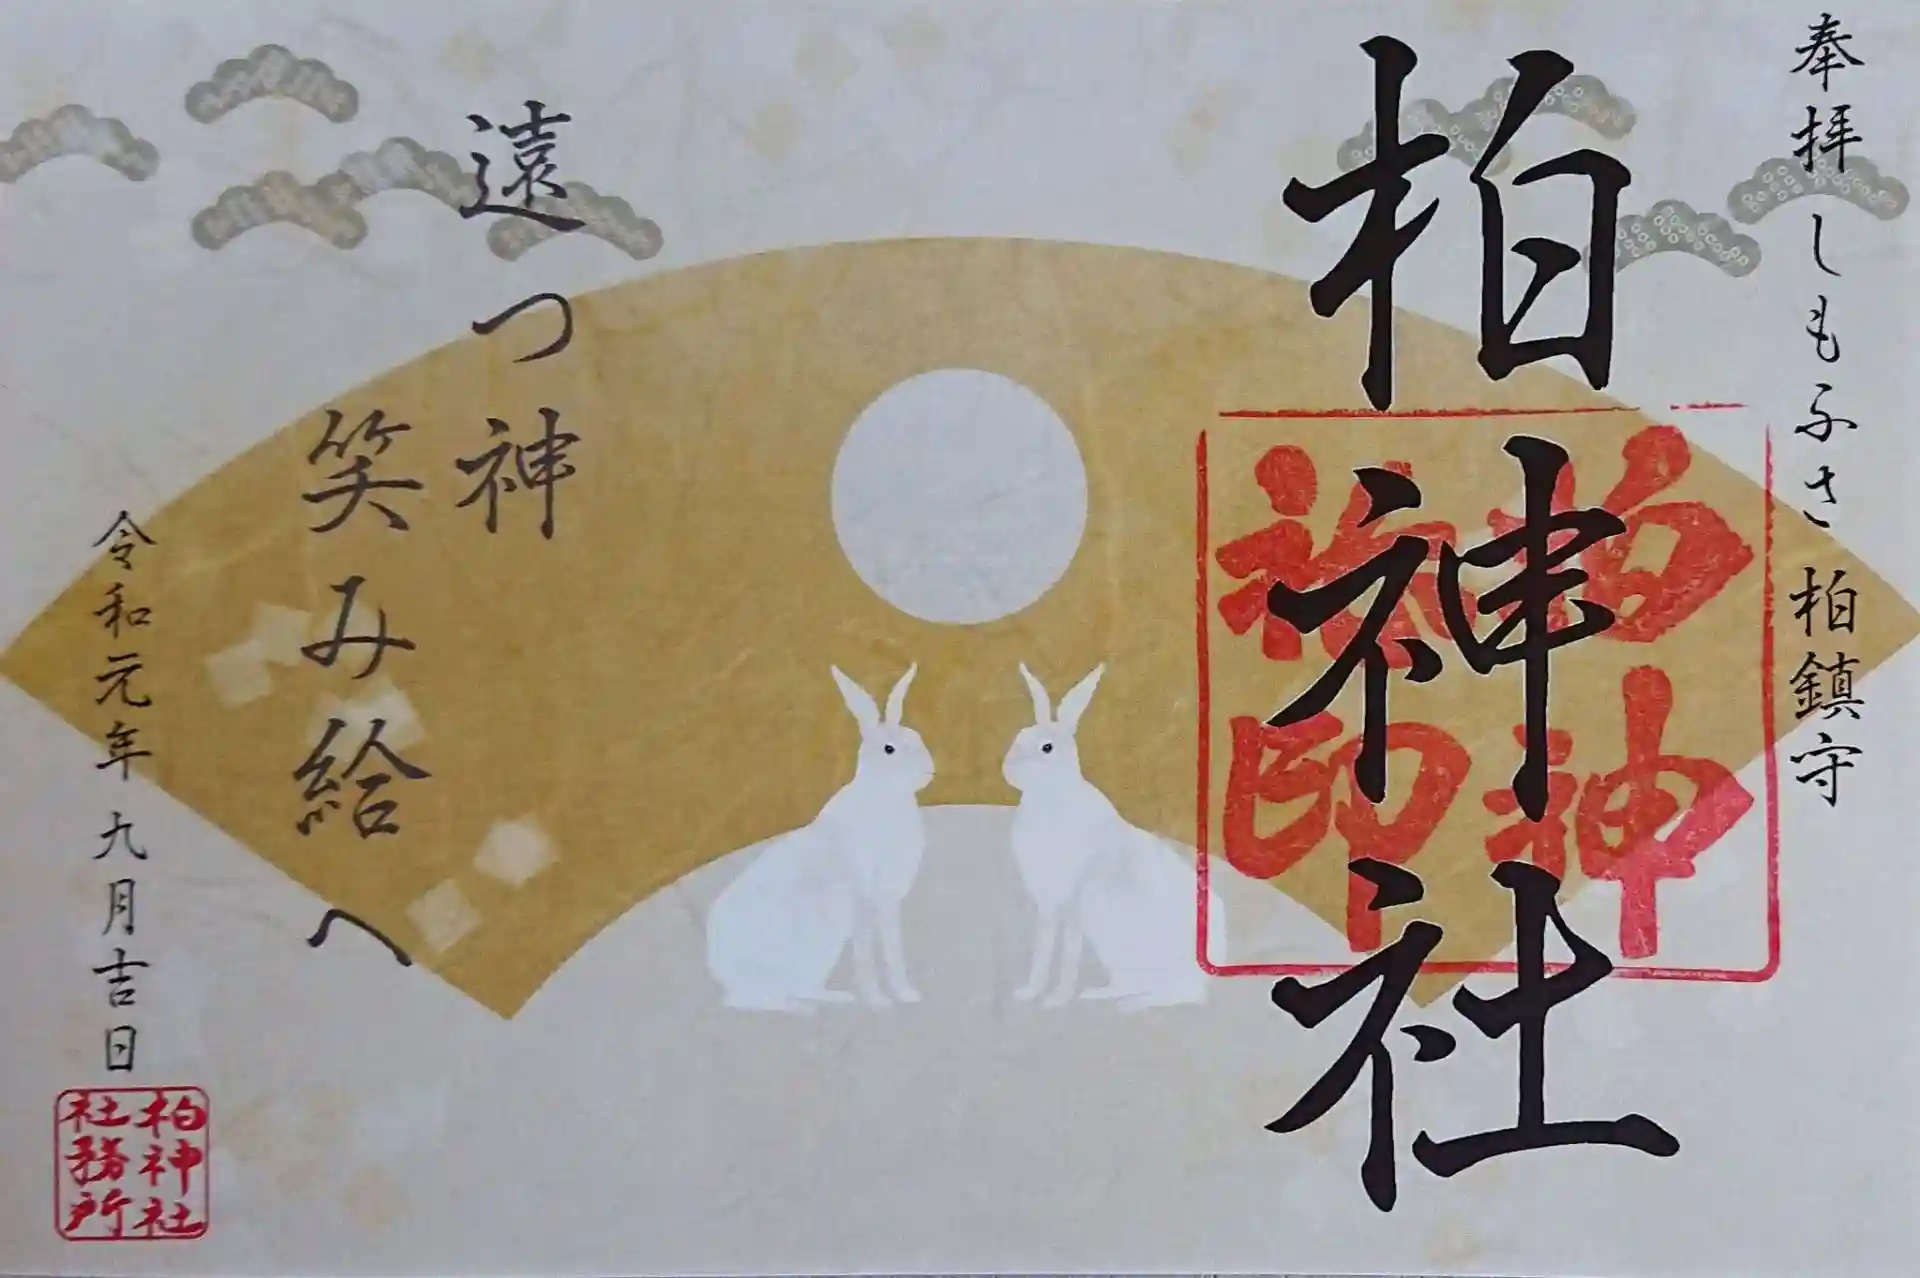 奉拝しもふさ柏鎮守
柏神社
柏神
社印
遠つ神
笑み給へ
令和元年九月吉日
柏神社
社務所